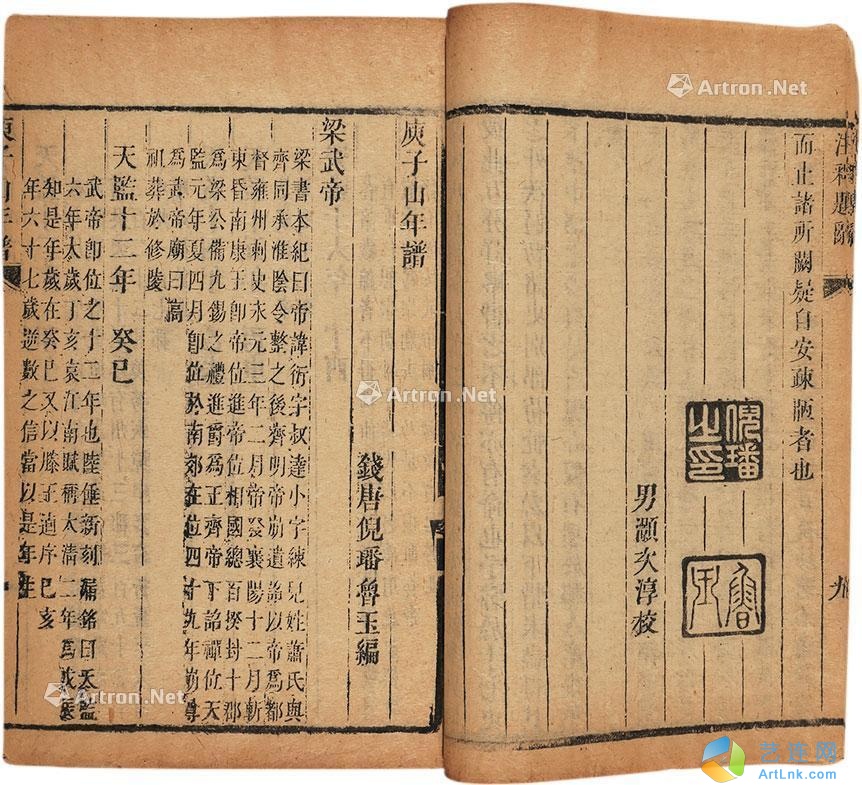 注釋題辭
而止諸所闕疑自安疎陋者也
倪璠之印
魯玉
男灝文淳校
九
庾子山年譜
錢唐倪璠魯玉編
梁武帝
梁書本紀曰帝諱衍字叔達小字練兒姓蕭氏與
齊同承淮陰令整之後齊明帝崩遺詔以帝爲都
督雍州刺史永元三年二月帝發襄陽十二月斬
東昏南康王即帝位進帝位相國總百揆封十郡
爲梁公備九錫之禮進爵爲王齊帝下詔禪位天
監元年夏四月即位於南郊在位四十九年崩尊
爲武帝廟曰高
祖葬於修陵
天監十二年 癸巳
武帝即位之十二年也陸倕新刻漏銘曰天監
六年太歲丁亥哀江南賦稱太清二年爲戊辰
知是年歲在癸巳又以滕王逌序己亥
年六十七歲逆數之信當以是年生
庾子山年譜
Artron.Net
Artron.Net
Artron.Net
Artron.Net
艺连网
ArtLnk.com